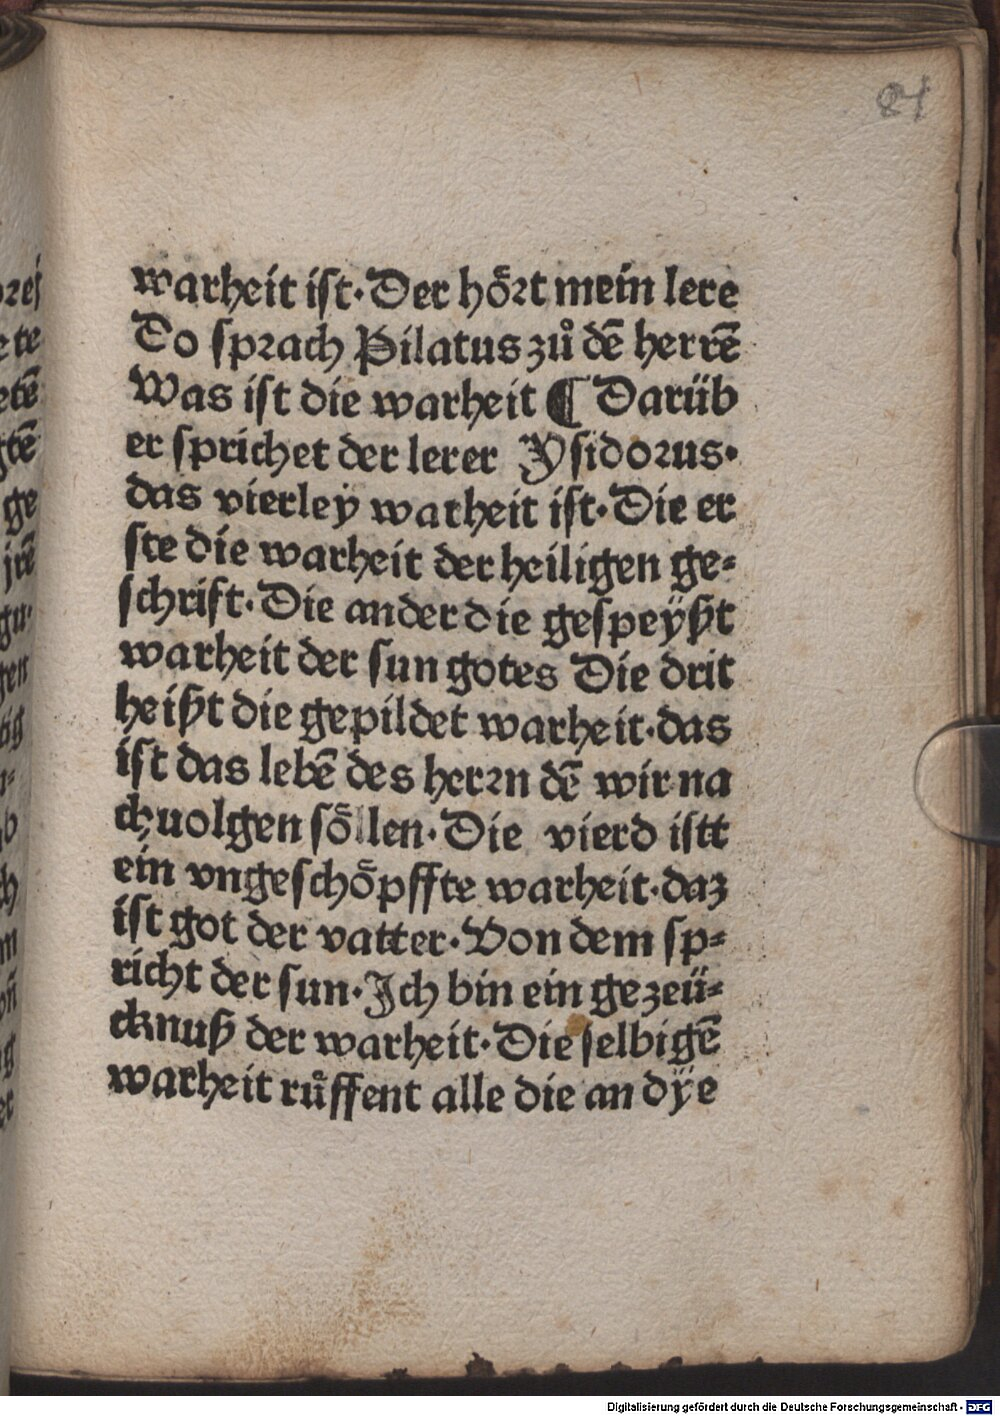 21
warheit ist· Der hoͤrt mein lere
Do sprach Pilatus zuͦ dē herrē
Was ist die warheit ¶ Darüb
er sprichet der lerer Ysidorus·
das vierley warheit ist· Die er
ste die warheit der heiligen ge⸗
schrift· Die ander die gespeÿßt
warheit der sun gotes Die drit
heißt die gepildet warheit· das
ist das lebē des herrn dē wir na
chuolgen soͤllen· Die vierd istt
ein vngeschoͤpffte warheit· daz
ist got der vatter· Von dem sp⸗
richt der sun· Ich bin ein gezeü⸗
cknuß der warheit· Die selbigē
warheit ruͦffent alle die an dÿe
Digitalisierung gefördert durch die Deutsche Forschungsgemeinschaft - DFG